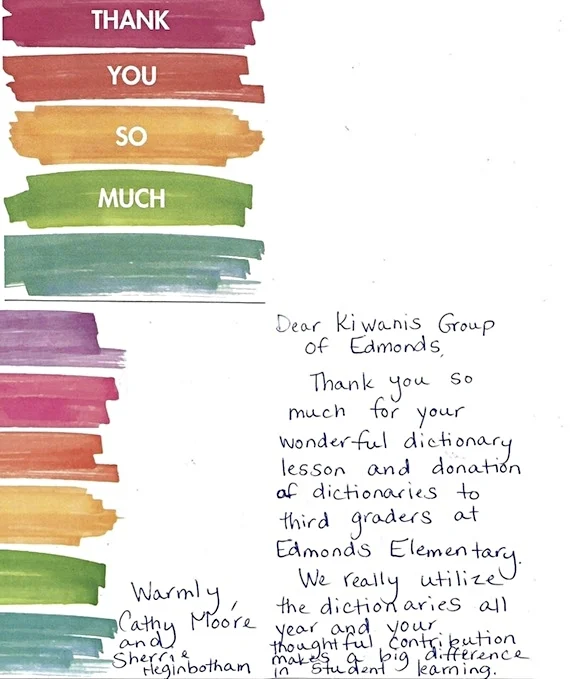 THANK
YOU
SO
MUCH
Dear Kiwanis Group
of Edmonds,
Thank you so
much for your
wonderful dictionary
lesson and donation
of dictionaries to
third graders at
Edmonds Elementary.
We really utilize
the dictionaries all
year and your
thoughtful contribution
makes a big difference
in student learning.
Warmly,
Cathy Moore
and
Sherrie
Heginbotham